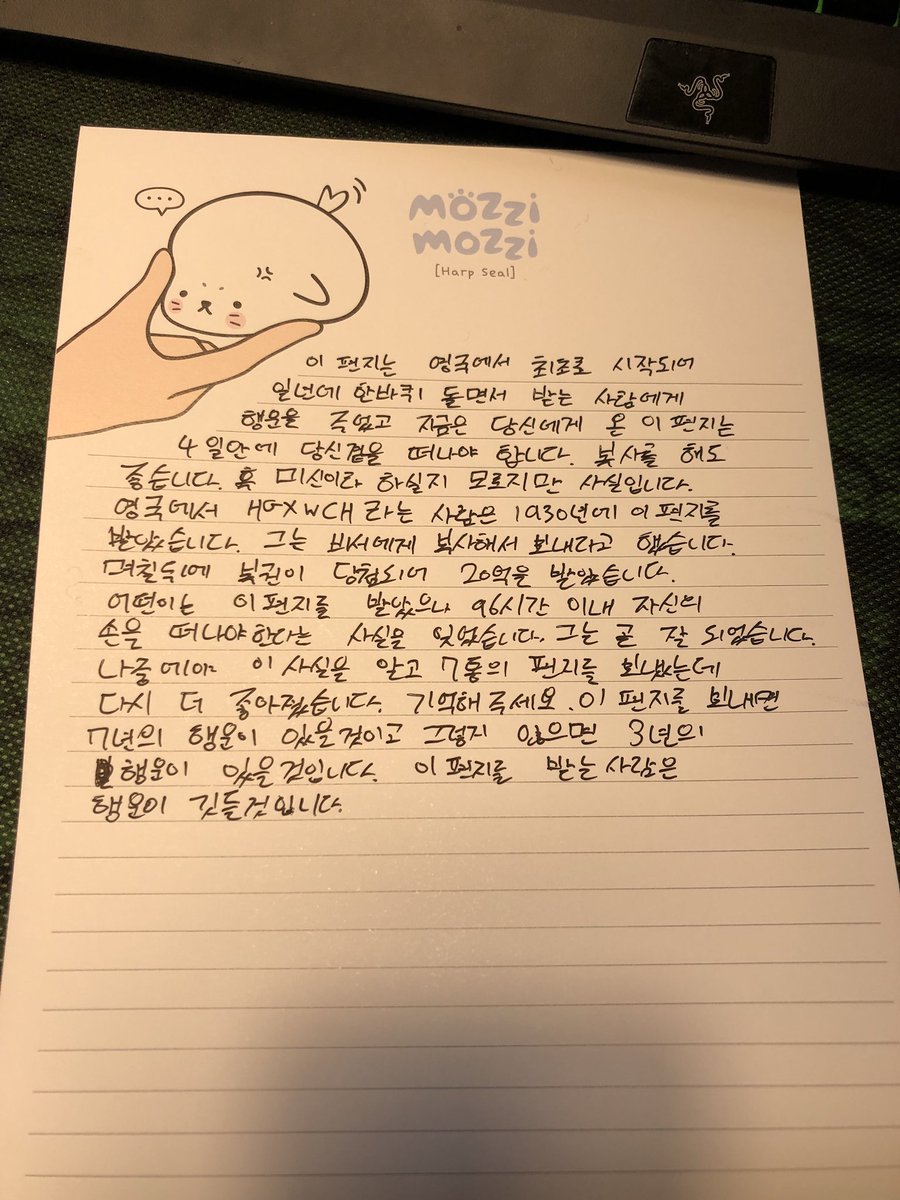 ...
MÖZZi
MOZZi
[Harp Seal]
이 편지는 영국에서 최초로 시작되어
일년에 한바퀴 돌면서 받는 사람에게
행운을 주었고 지금은 당신에게 온 이 편지는
4일안에 당신곁을 떠나야 합니다. 복사를 해도
좋습니다. 혹 미신이라 하실지 모르지만 사실입니다.
영국에서 HGXWCH라는 사람은 1930년에 이 편지를
받았습니다. 그는 비서에게 복사해서 보내라고 했습니다.
며칠뒤에 복권이 당첨되어 20억을 받았습니다.
어떤이는 이 편지를 받았으나 96시간 이내 자신의
손을 떠나야한다는 사실을 잊었습니다. 그는 곧 잘 되었습니다.
나중에야 이 사실을 알고 7통의 편지를 보냈는데
다시 더 좋아졌습니다. 기억해주세요. 이 편지를 보내면
7년의 행운이 있을것이고 그렇지 않으면 3년의
행운이 있을것입니다. 이 편지를 받는사람은
행운이 깃들것입니다.